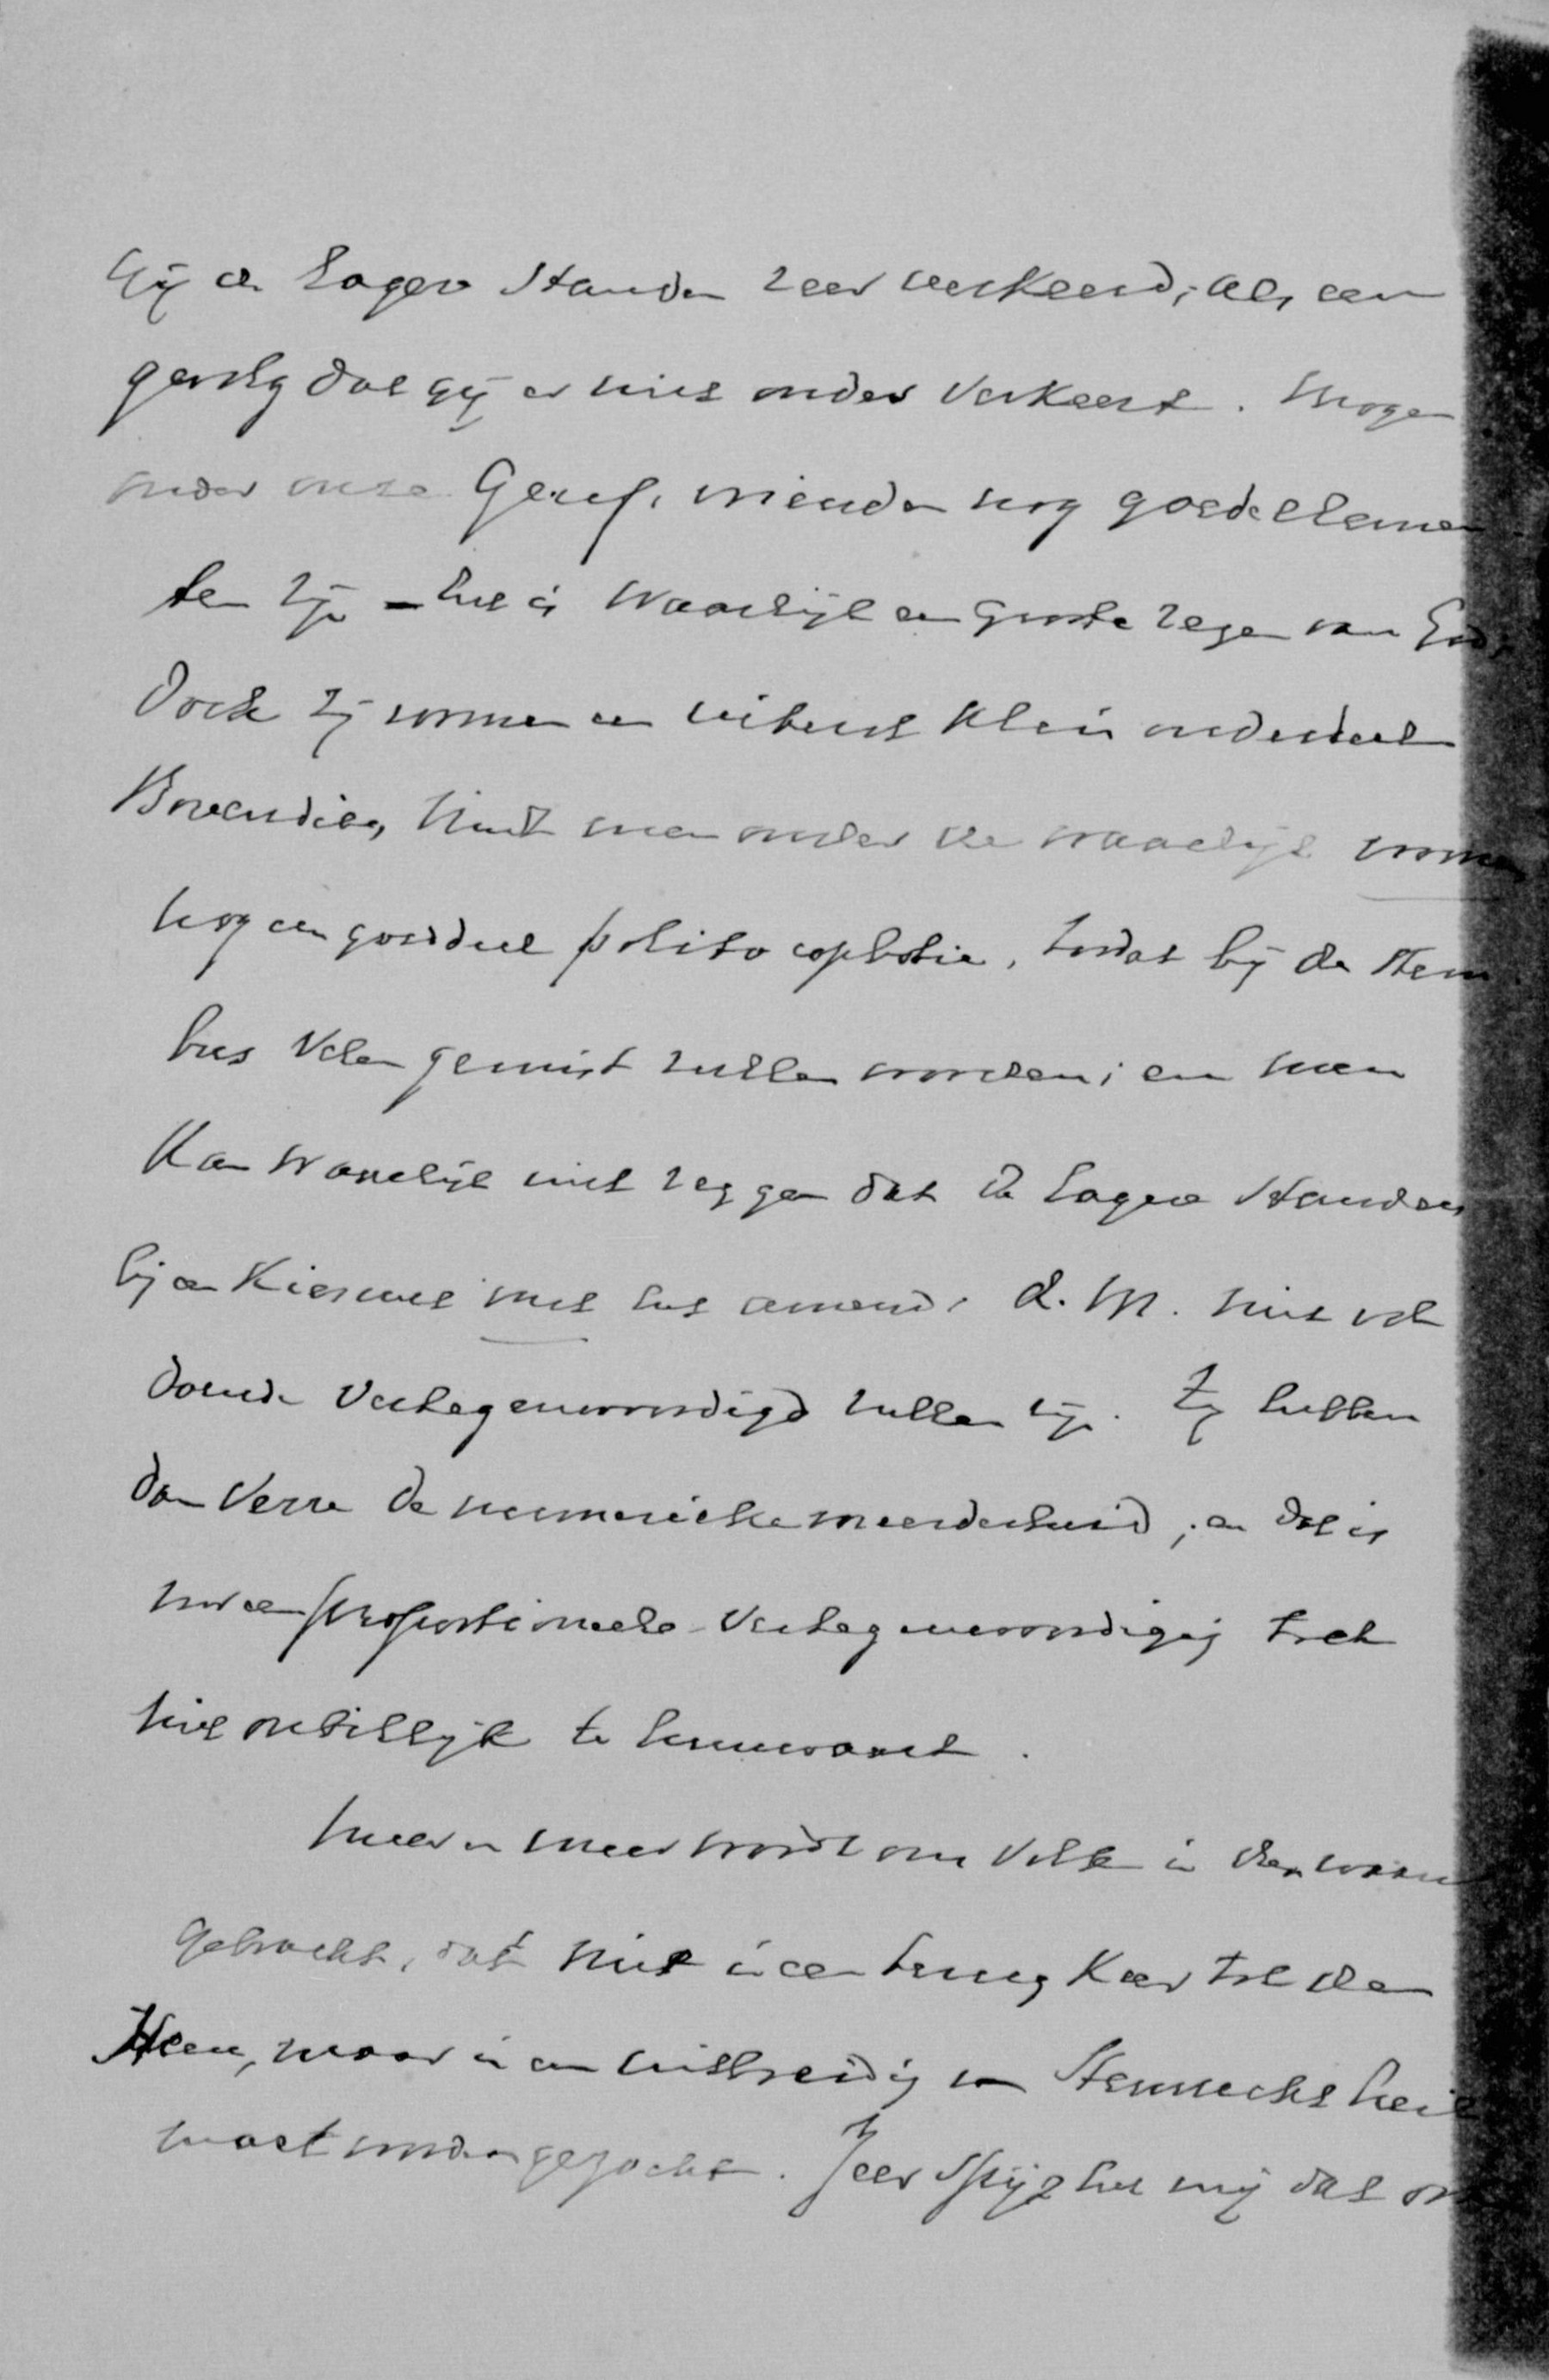 gij de lagere standen zeer verkeerd; als een
gevolg dat gij er niet onder verkeert. Mogen
onder onze Geref. vrienden nog goede elemen
ten zijn – het is waarlijk een groote zegen van God,
Doch zij vormen een uiterst klein onderdeel
Bovendien, vindt men onder die waarlijk vromen
nog een goed deel politicophobie, zoodat bij de stem
bus velen gemist zullen worden; en men
kan waarlijk niet zeggen dat de lagere standen
bij de Kieswet met het amend. d. M. niet vol
doende vertegenwoordigd zullen zijn. Zij hebben
dan verre de numerieke meerderheid; en dat is
voor een proportioneele vertegenwoordiging toch
niet onbillijk te hunwaart.
Meer en meer wordt ons volk in den waan
gebracht, dat niet in een terugkeer tot den
Heer, maar in een uitbreiding van stemrecht heil
moet worden gezocht. Zeer spijt het mij dat